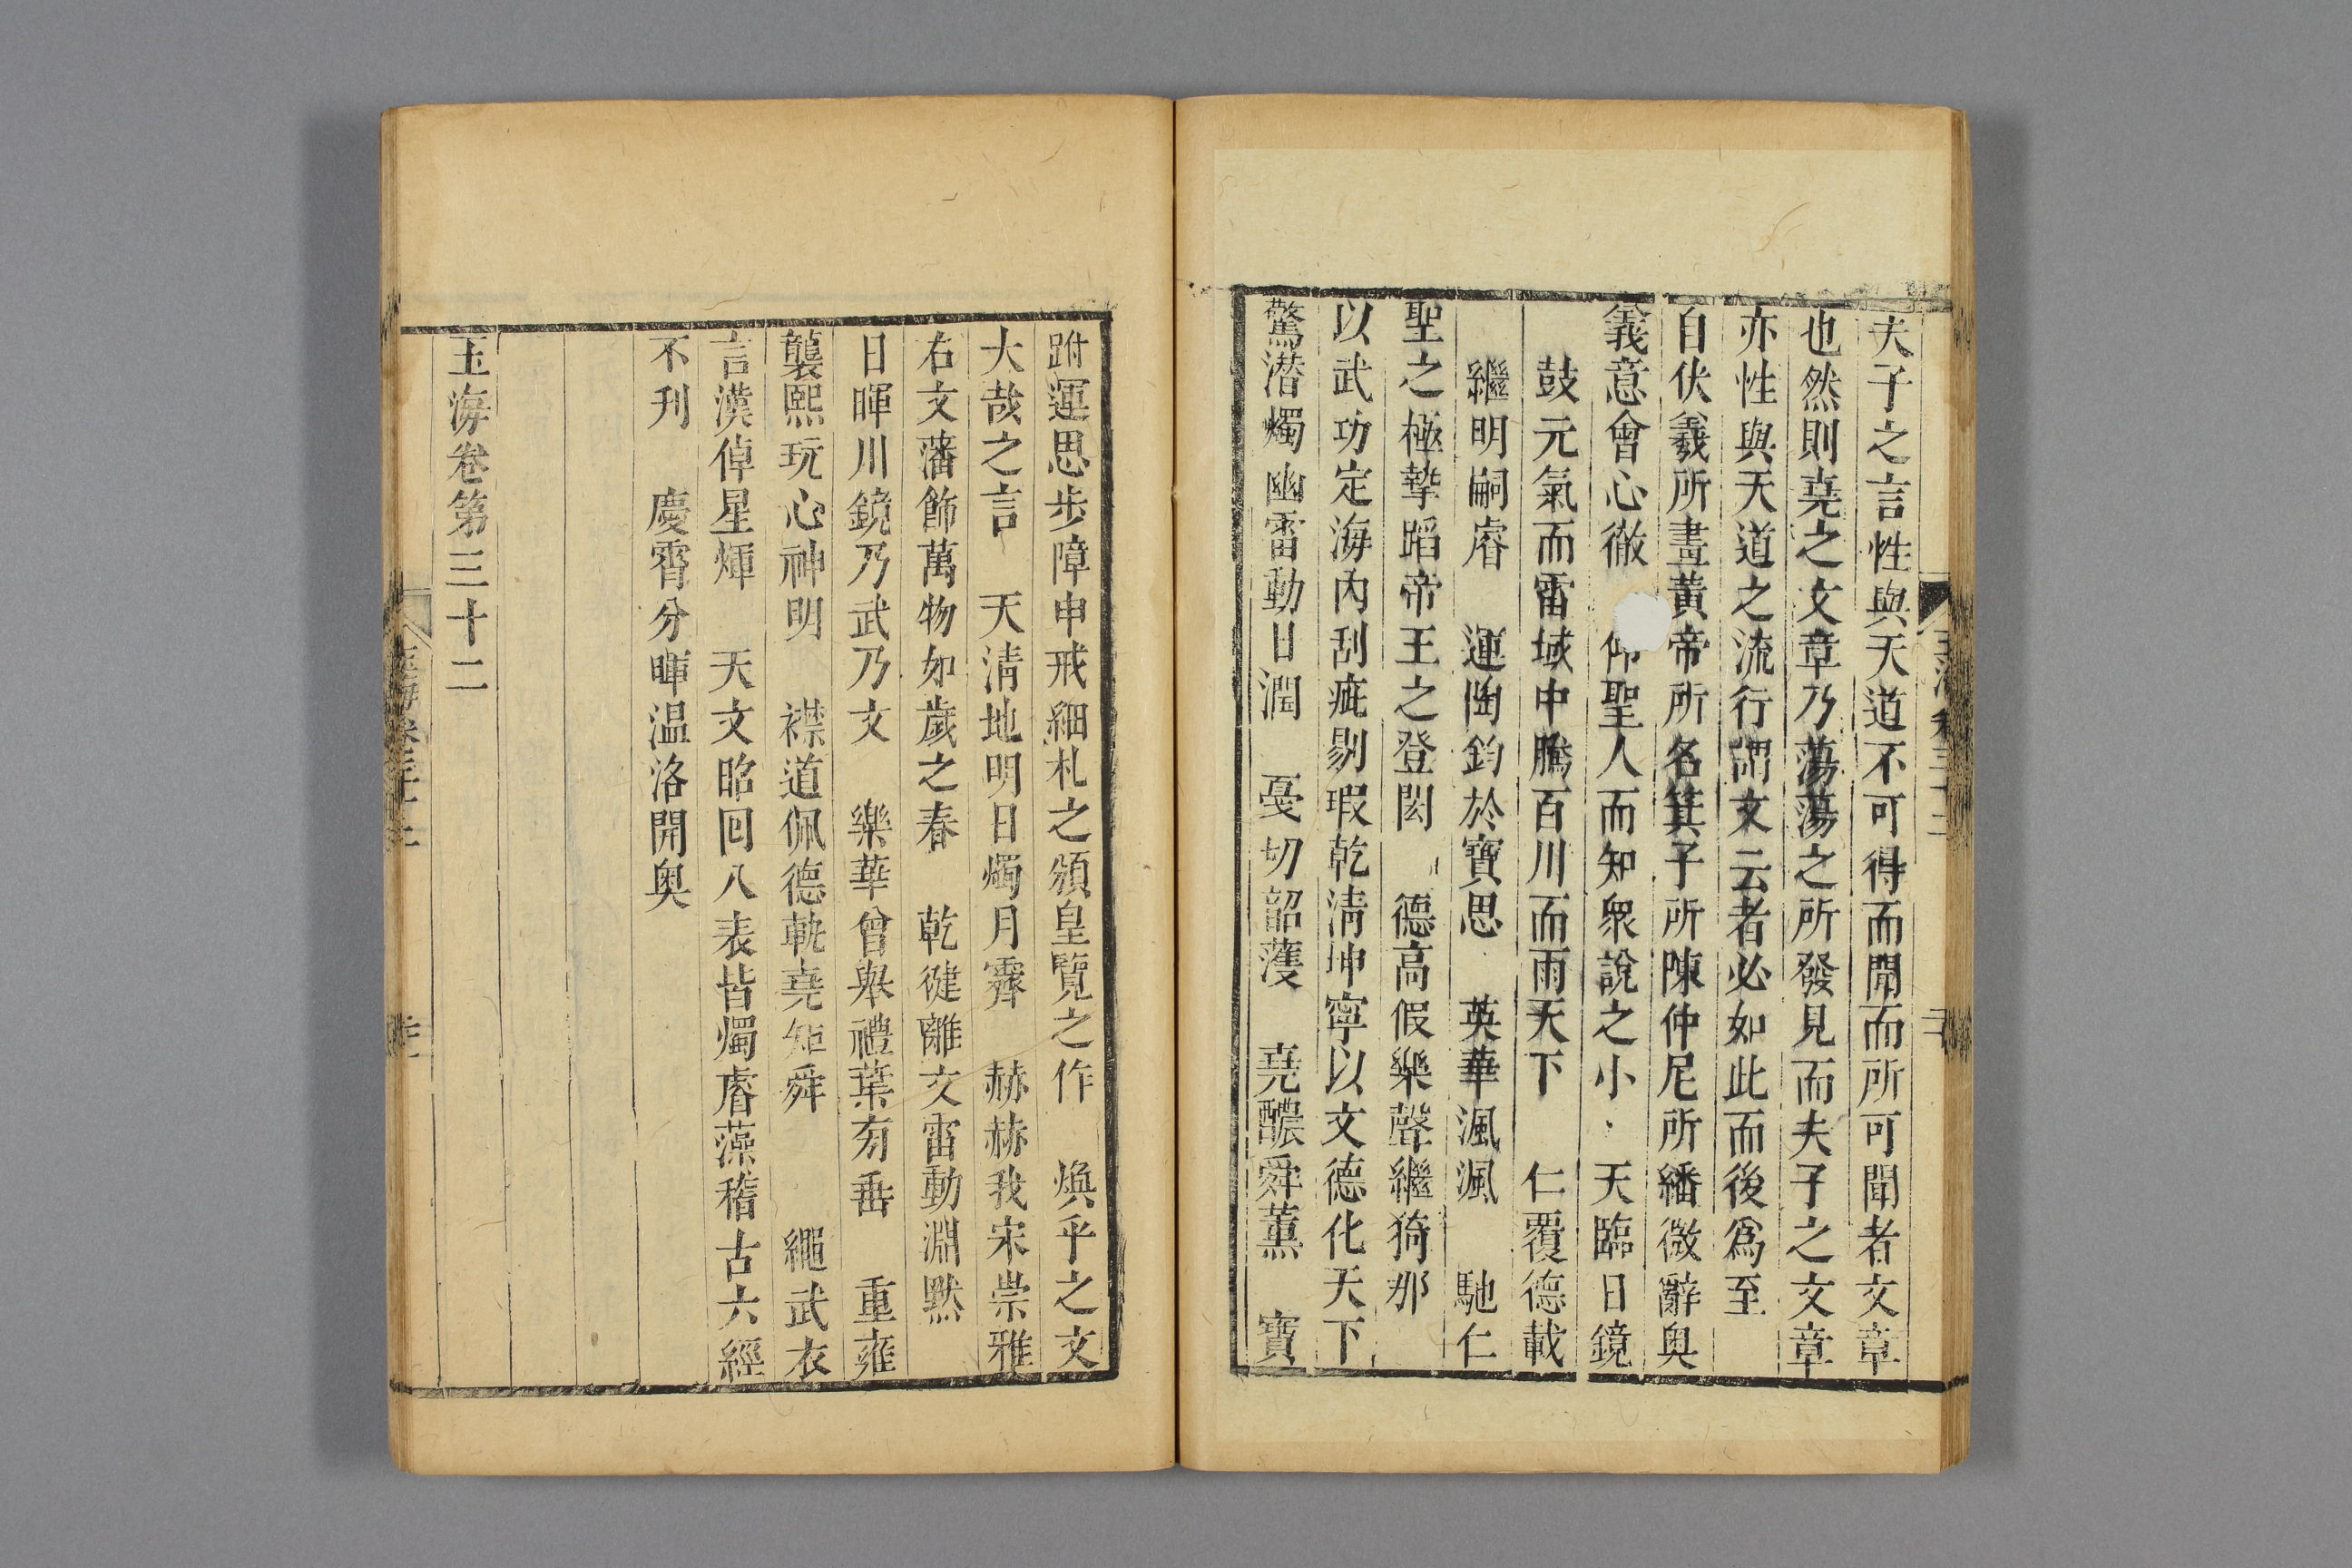 夫子之言性與天道不可得而聞而所可聞者文章
也然則堯之文章乃蕩蕩之所發見而夫子之文章
亦性與天道之流行謂文云者必如此而後爲至
自伏羲所畫黃帝所名箕子所陳仲尼所繙微辭奧
義意會心徹 仰聖人而知衆說之小 天臨日鏡
鼓元氣而雷域中騰百川而雨天下 仁覆德載
繼明嗣睿 運陶鈞於寶思 英華渢渢 馳仁
聖之極摯蹈帝王之登閎 德高假樂聲繼猗那
以武功定海內刮疵剔瑕乾淸坤寧以文德化天下
驚潜燭幽雷動日潤 戞切韶濩 堯醲舜薰 寶
跗運思步障申戒細札之頒皇覽之作 煥乎之文
大哉之言 天淸地明日燭月霽 赫赫我宋崇雅
右文藩飾萬物如歲之春 乾健離文雷動淵默
日暉川鏡乃武乃文 樂華曾舉禮葉有垂 重雍
襲熙玩心神明 襟道佩德軌堯矩舜 繩武衣
言漢倬星煇 天文昭回八表皆燭睿藻稽古六經
不刋 慶霄分暉温洛開奥
玉海卷第三十二